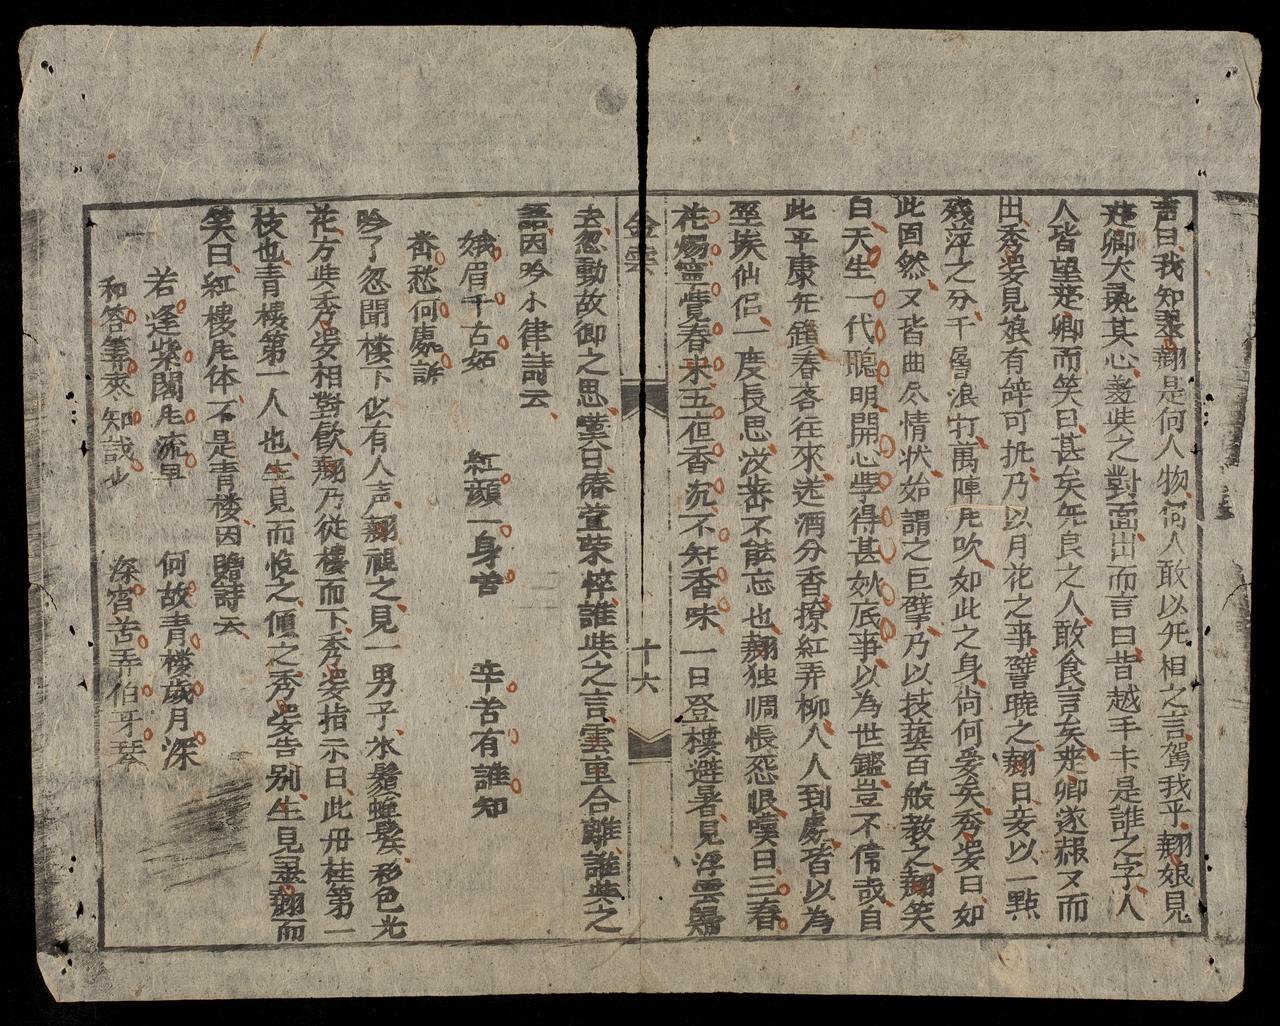 言曰我知翠翹是何人物何人敢以無相之言駕我乎翹娘見
楚卿大畏其心發與之對面出而言曰昔越手卡是誰之字人
人皆望楚卿而笑曰甚矣無良之人敢食言矣楚卿遂赧又而
出秀婆見娘有辞可抗乃以月花之事警曉之翹曰妾以一點
殘萍之分千層浪打萬陣風吹如此之身尚何爱矣秀婆曰如
此固然又皆曲尽情状始謂之巨擘乃以技藝百般教之翹笑
曰天生一代聪明開心學得甚妙底事以為世鑑豈不佾哉自
此平康無鐘春客往來送酒分香撩紅弄柳人人到處皆以為
塵埃仙侣一度長思没齿不能忘也翹独惆悵怨恨嘆曰三春
花塲寧覺春来五夜香沉不知香味一日登樓避暑見浮雲歸
金雲
十六
去忽動故鄉之思嘆曰椿萱荣悴誰與之言雲重合離誰與之
語因吟小律詩云
娥眉千古妬 紅顔一身苦 辛苦有誰知
春愁何處訴
吟了忽聞樓下似有人声翹視之見一男子氷鬚蟬鬓彩色光
花方與秀婆相對飲翹乃従樓而下秀婆指示曰此丹桂第一
枝也青樓第一人也生見而悅之傾之秀婆告别生見翠翹而
笑曰紅樓風体不是青楼因贈詩云
若逢紫閣風流早 何故青楼歲月深
和答筭來知哉少 深宵苦弄伯牙琴